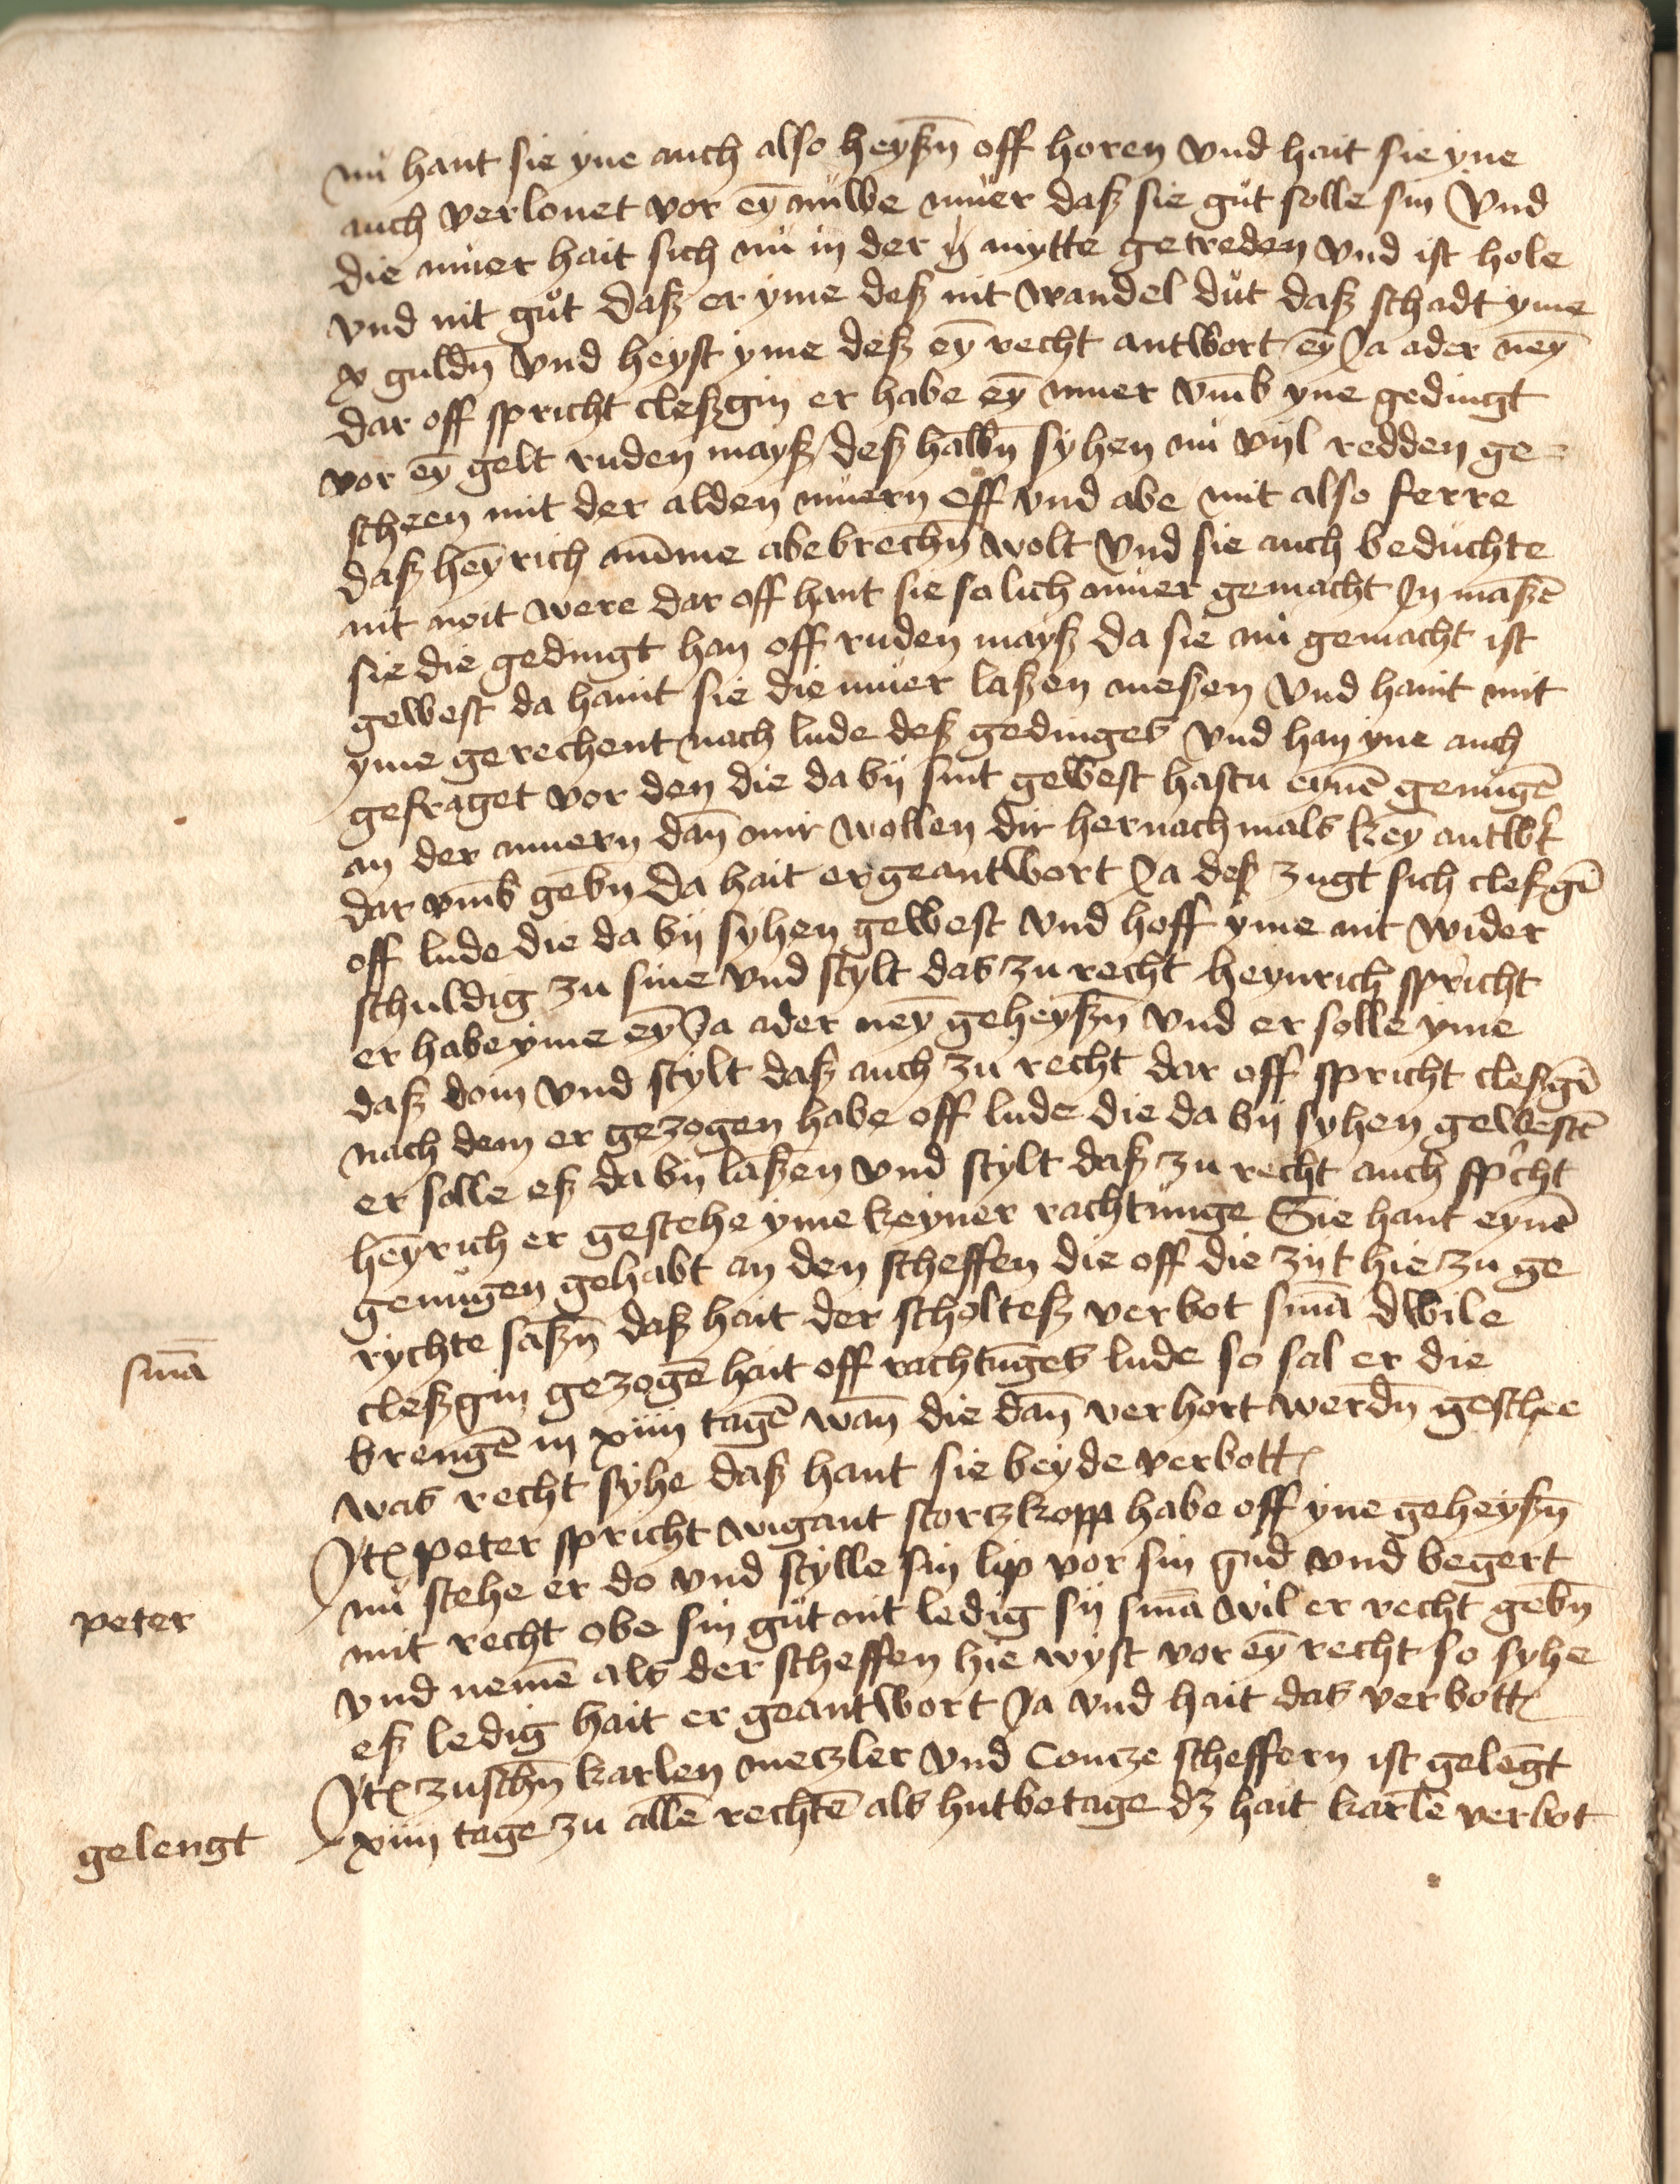 nů hant sie yne auch also heyßn̄ off horen vnd hait sie yne
auch verlonet vor ey̅ nuwe muer daß sie gůt solle sin Vnd
die muer hait sich nů in der mytte getreden vnd ist hole
vnd nit gůt daß er yme deß nit wandel důt daß schadt yme
x guldn̄ vnd heyst yme deß ey̅ recht antwort ey̅ Ja ader ney̅
dar off spricht cleßgin er habe ey̅ muer vm̅b yne gedingt
vor ey̅ gelt ruden mayß deß halbn̄ syhen nů vijl redden ge=
scheen mit der alden můern off vnd abe mit also ferre
daß hey̅rich nu̅me abebrechn̄ wolt vnd sie auch beduchte
nit noit were dar off hant sie solich můer gemacht In maßē
sie die gedingt han off ruden mayß da sie nů gemacht ist
gewest da haint sie die můer laßen meßen vnd haint mit
yme gerechent nach lude deß gedinges vnd han yne auch
gefraget vor den die da bij sint gewest hastu eynē genugē
an der muern dan̄ mir wollen dir hernachmals key̅ antwt
dar vm̅b gebn̄ da hait er geantwort Ja deß zugt sich cleßgī
off lude die da bij syhen gewest vnd hoff yme nit wider
schuldig zu sine vnd stylt das zu recht heynrich spricht
er habe yme ey̅ Ja ader ney̅ geheyßn̄ vnd er solle yme
daß dom vnd stylt daß auch zu recht dar off spricht cleßgī
nach dem er gezogen habe off lude die da bij syhen gewestē
er solle eß da bij laßen vnd stylt daß zu recht auch sp̉cht
hey̅rich er gestehe yme keyner rachtunge Sie hant eynē
genůgen gehabt an den scheffen die off die zijt hie zu ge
rychte saßn̄ daß hait der scholteß verbot sm̅a dwile
cleßgin gezogē hait off rachtūges lude so sal er die
brengē in xiiij tagē wan̄ die dan̄ verhort werdn̄ geschee
was recht syhe daß hant sie beyde verbott
sm̅a
Jt peter spricht wigant storczkopp habe off yne geheyßn̄
nů stehe er do vnd stylle sin lip vor sin gud vnd begert
mit recht obe sin gůt nit ledig sij sm̅a wil er recht gebn̄
peter
vnd nemē als der scheffen hie wyst vor ey̅ recht so syhe
eß ledig hait er geantwort Ja vnd hait das verbott
Jt zuschn̄ karlen meczler vnd Concze scheffern ist gelengt
xiiij tage zu allē rechtē als hutbetage dz hait karlē verbot
gelengt